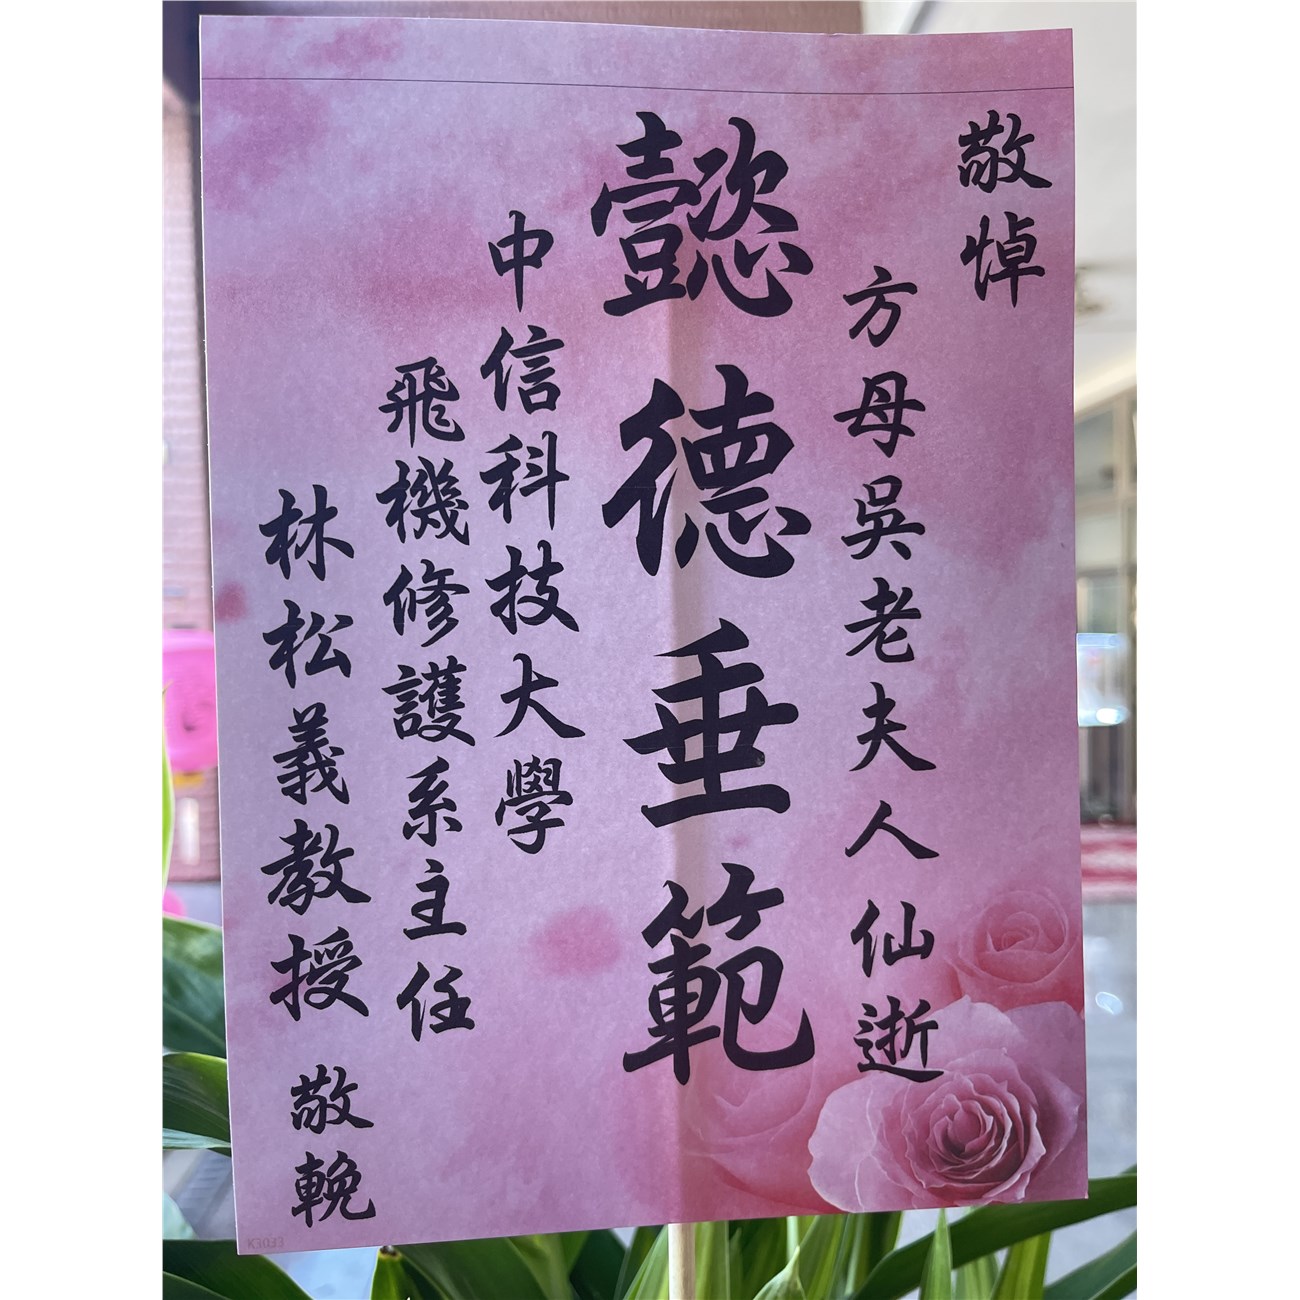 敬悼
方母吳老夫人仙逝
懿德垂範
中信科技大學
飛機修護系主任
林松義教授 敬輓